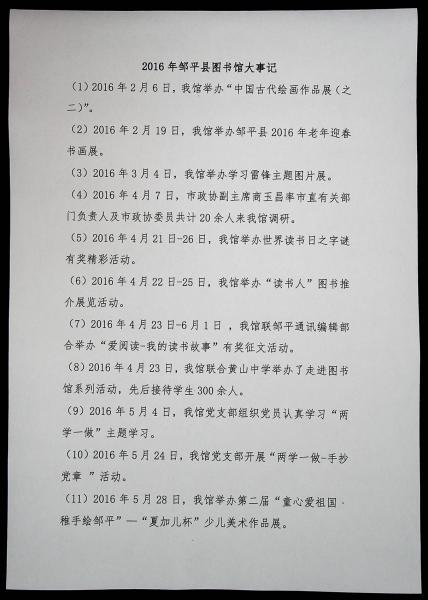 2016年邹平县图书馆大事记
(1)2016年2月6日,我馆举办“中国古代绘画作品展(之
二)”。
(2)2016年2月19日,我馆举办邹平县2016年老年迎春
书画展。
(3)2016年3月4日,我馆举办学习雷锋主题图片展。
(4)2016年4月7日,市政协副主席商玉昌率市直有关部
门负责人及市政协委员共计20余人来我馆调研。
(5)2016年4月21日-26日,我馆举办世界读书日之字谜
有奖精彩活动。
(6)2016年4月22日-25日,我馆举办“读书人”图书推
介展览活动。
(7)2016年4月23日-6月1日 ,我馆联邹平通讯编辑部
合举办“爱阅读-我的读书故事”有奖征文活动。
(8)2016年4月23日,我馆联合黄山中学举办了走进图书
馆系列活动,先后接待学生300余人。
(9)2016年5月4日,我馆党支部组织党员认真学习“两
学一做”主题学习。
(10)2016年5月24日,我馆党支部开展“两学一做-手抄
党章 ”活动。
(11)2016年5月28日,我馆举办第二届“童心爱祖国·
稚手绘邹平”—“夏加儿杯”少儿美术作品展。